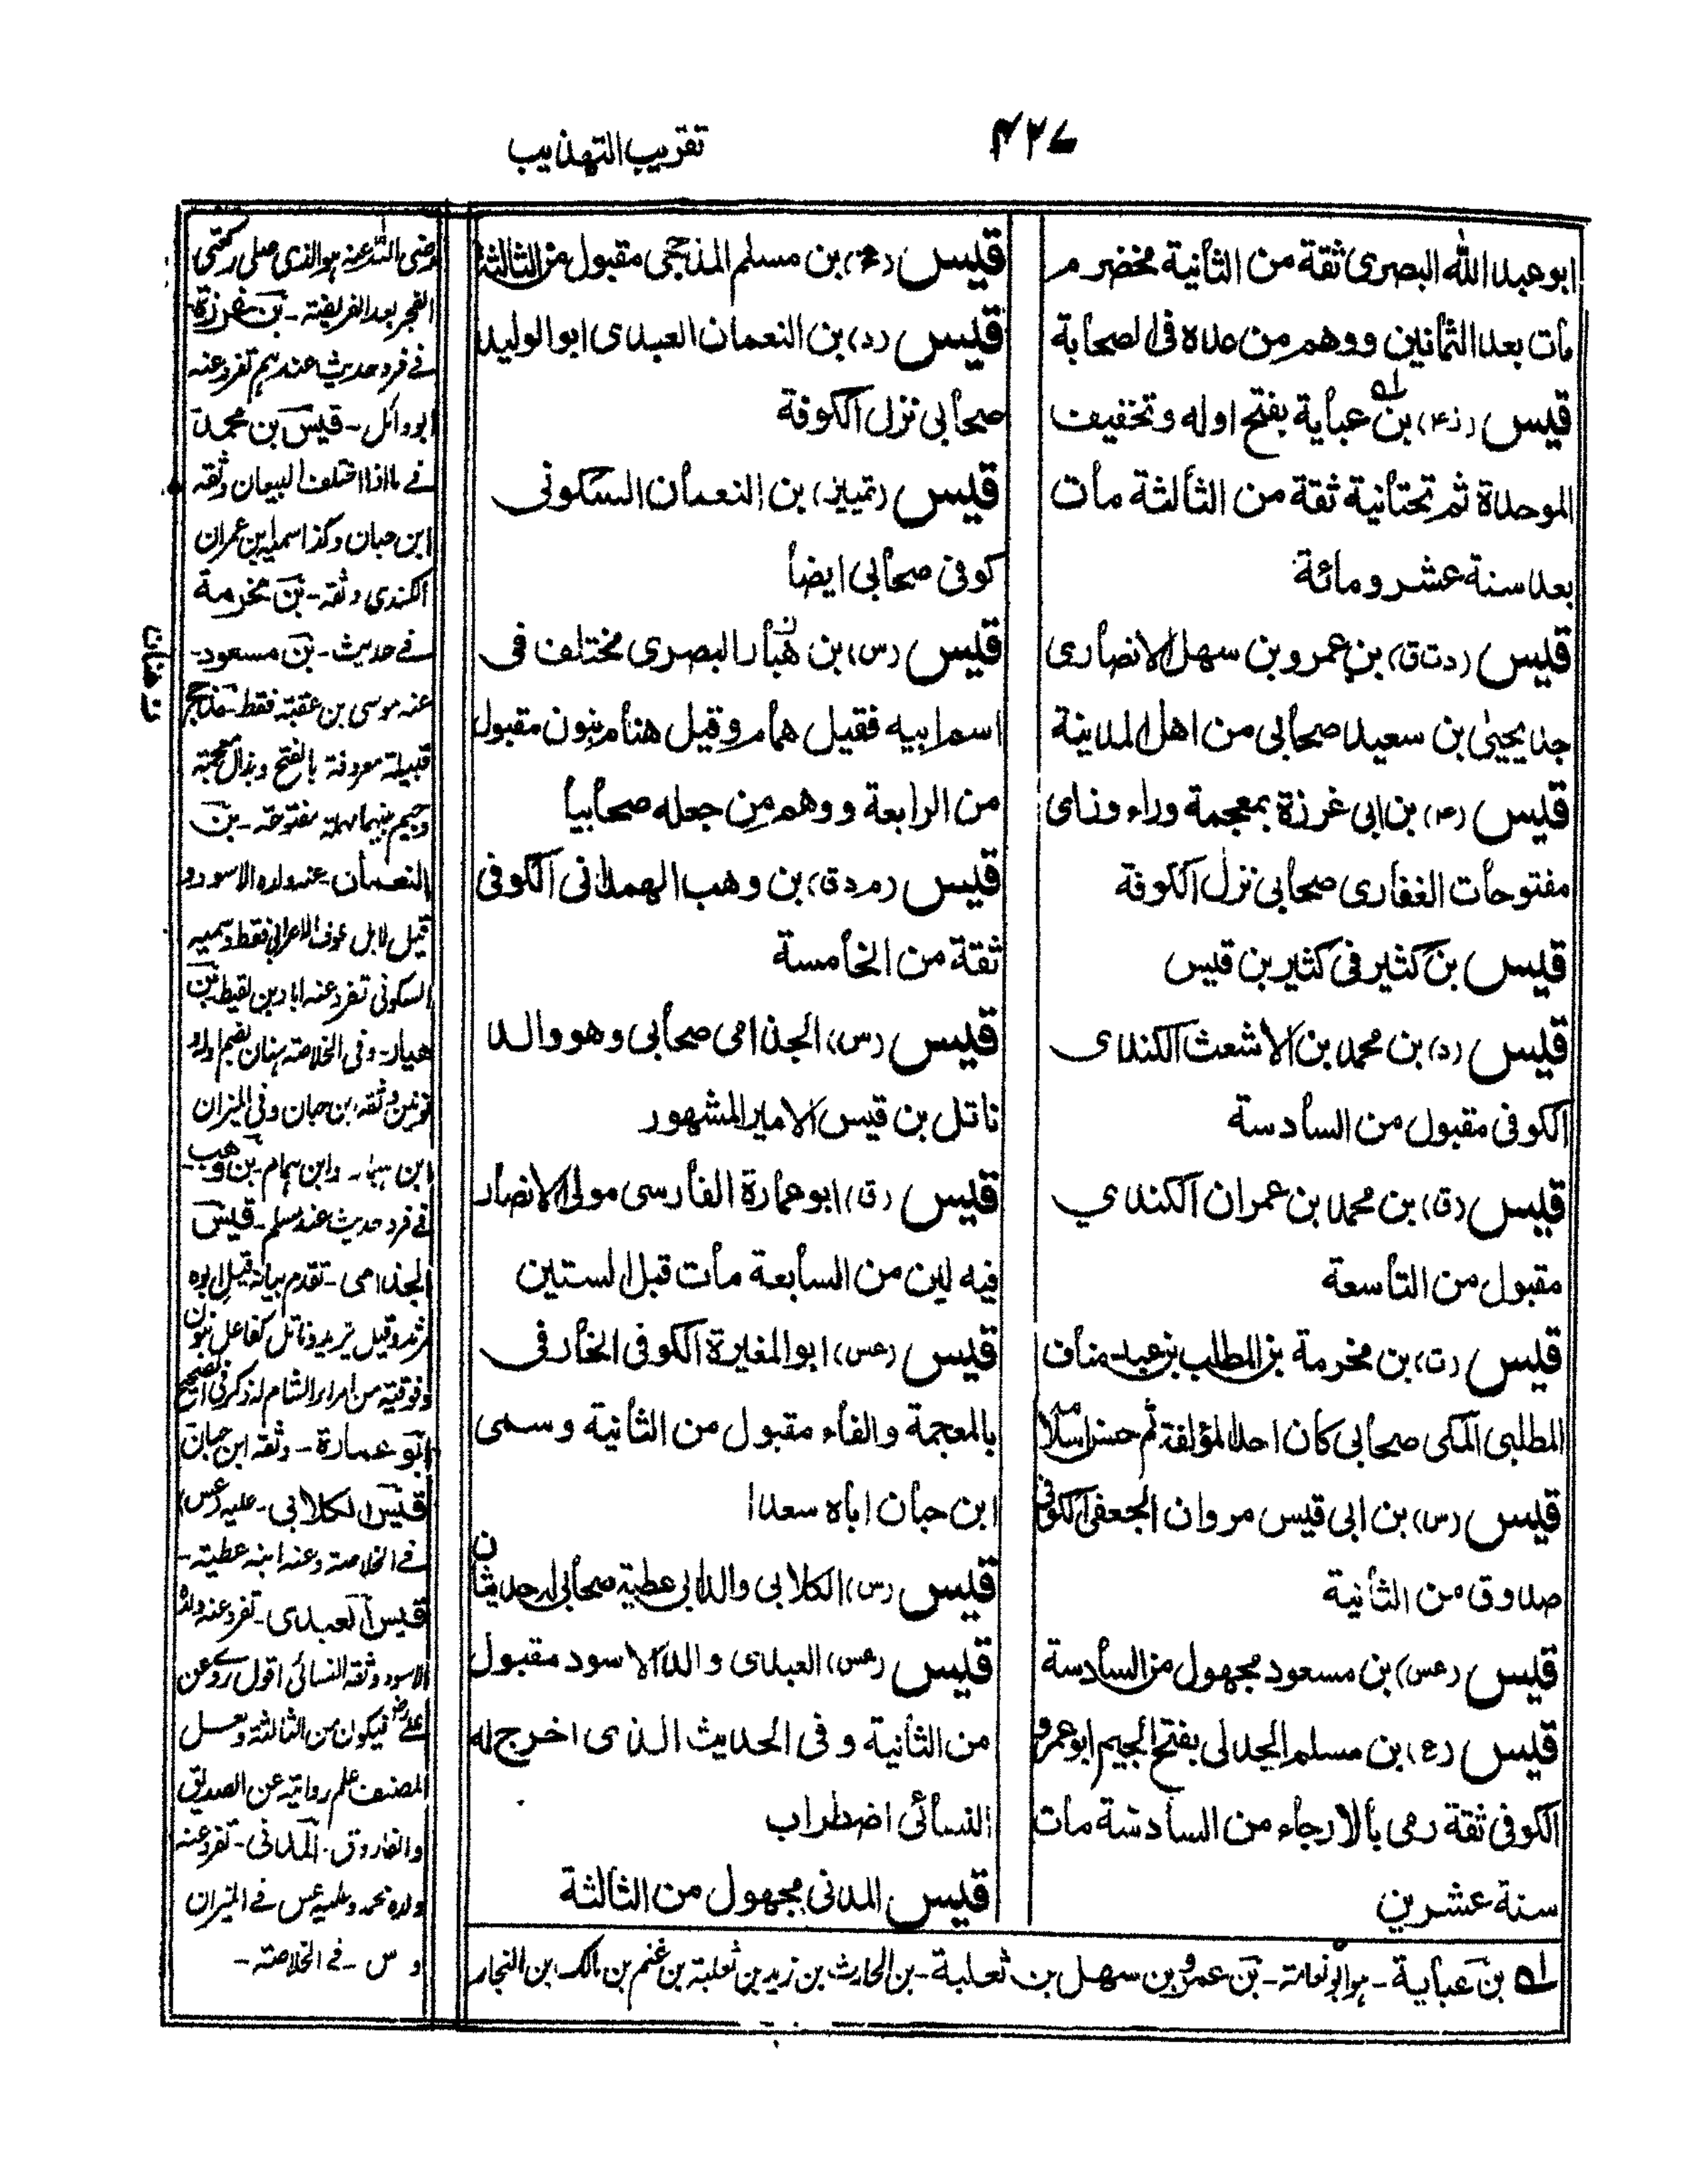 ۴۲۷
تقريب التهذيب
ابو عبد الله البصرى ثقة من الثانية مخضرم
مات بعد الثمانين ووهم من عده فى الصحابة
قيس (ز۴) بن عباية بفتح اوله وتخفيف
الموحدة ثم تحتانية ثقة من الثالثة مات
بعد سنة عشر ومائة
قيس (دت ق) بن عمرو بن سهل الانصارى
جد يحيىٰ بن سعيد صحابى من اهل المدينة
قيس (۴) بن ابى غرزة بمعجمة وراء وزاى
مفتوحات الغفارى صحابى نزل الكوفة
قيس بن كثير فى كثير بن قيس
قيس (د) بن محمد بن الاشعث الكندى
الكوفى مقبول من السادسة
قيس (ق) بن محمد بن عمران الكندي
مقبول من التاسعة
قيس (ت) بن مخرمة بن المطلب بن عبد مناف
المطلبى المكى صحابى كان احد المؤلفة ثم حسن اسلامه
قيس (س) بن ابى قيس مروان الجعفى الكوفى
صدوق من الثانية
قيس (عس) بن مسعود مجهول من السادسة
قيس (ع) بن مسلم الجدلى بفتح الجيم ابو عمرو
الكوفى ثقة رمى بالارجاء من السادسة مات
سنة عشرين
قيس (عخ) بن مسلم المذحجى مقبول من الثالثة
قيس (د) بن النعمان العبدى ابو الوليد
صحابى نزل الكوفة
قيس (تمييز) بن النعمان السكونى
كوفى صحابى ايضا
قيس (س) بن هبار البصرى مختلف فى
اسم ابيه فقيل همام وقيل هنام بنون مقبول
من الرابعة ووهم من جعله صحابيا
قيس (مد ق) بن وهب الهمدانى الكوفى
ثقة من الخامسة
قيس (س) الجذامى صحابى وهو والد
ناتل بن قيس الامير المشهور
قيس (ق) ابو عمارة الفارسى مولى الانصار
فيه لين من السابعة مات قبل الستين
قيس (عس) ابو المغيرة الكوفى الخارفى
بالمعجمة والفاء مقبول من الثانية وسمى
ابن حبان اباه سعدا
قيس (س) الكلابى والد ابى عطية صحابى له حديثان
قيس (عس) العبدى والد الاسود مقبول
من الثانية وفى الحديث الذى اخرج له
النسائى اضطراب
قيس المدنى مجهول من الثالثة
رضى الله عنه هو الذى صلى ركعتى
الفجر بعد الفريضة - بن غرزة
فے فرد حديث عندهم تفرد عنه
ابو وائل - قيس بن محمد
فے ما اذا اختلف البيعان وثقه
ابن حبان وكذا سميه ابن عمران
الكندى وثقه - بن مخرمة
فے حديث - بن مسعود -
عنه موسى بن عقبة فقط - مذحج
قبيلة معروفة بالفتح وبذال معجمة
وجيم بينهما مهملة مفتوحة - بن
النعمان - عنه ولده الاسود و
قيل لا بل عوف الاعرابى فقط وسميه
السكونى تفرد عنه اياد بن لقيط - بن
هبار - وفى الخلاصة هنان بضم اوله و
نونين وثقه بن حبان وفى الميزان
ابن هبار - وابن همام - بن وهب -
فے فرد حديث عند مسلم - قيس
الجذامى - تقدم بيانه قيل ابوه
زيد وناتل كفاعل بنون
وفوقية من امراء الشام له ذكر فى الصحيح
ابو عمارة - وثقه ابن حبان
قيس الكلابى - عليه (عس)
فے الخلاصة وعنه ابنه عطية -
قيس العبدى - تفرد عنه ولده
الاسود وثقه النسائى اقول روے عن
علے فيكون من الثالثة ولعل
المصنف علم روايته عن الصديق
والفاروق - المدنى - تفرد عنه
ولده محمد وعليه عس فے الميزان
و س - فے الخلاصة -
له بن عباية - هو ابو نعامة - بن عمرو بن سهل بن ثعلبة - بن الحارث بن زيد بن ثعلبة بن غنم بن مالك بن النجار